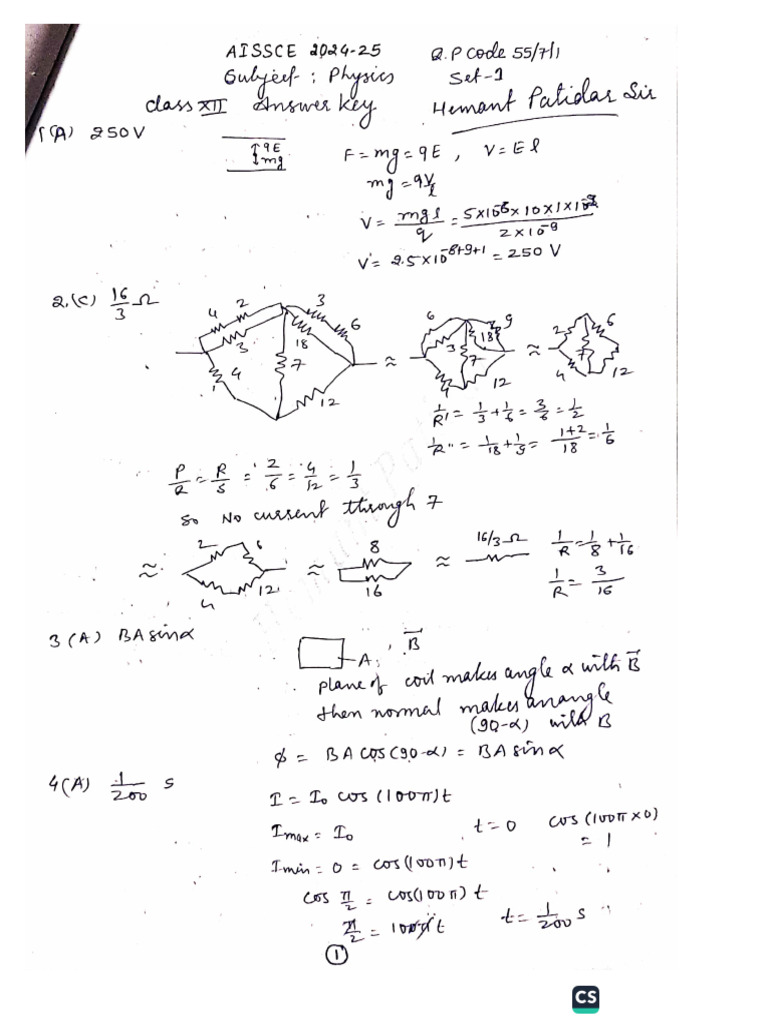 AISSCE 2024-25 Q.P Code 55/7/1
Subject : Physics Set-1
class XII Answer Key Hemant Patidar Sir
1(A) 250V
↑qE
↓mg
F = mg = qE , V = El
mg = qV/l
V = mgl/q = 5×10⁻⁸×10×1×10⁻²/2×10⁻⁹
V = 2.5×10⁻⁸⁺⁹⁺¹ = 250 V
2.(C) 16/3 Ω
4 2 3 6 3 18 4 7 12
≈ 6 9 3 18 7 4 12
≈ 2 6 7 4 12
1/R' = 1/3 + 1/6 = 3/6 = 1/2
1/R'' = 1/18 + 1/9 = 1+2/18 = 1/6
P/Q = R/S = 2/6 = 4/12 = 1/3
So No current through 7
≈ 2 6 4 12 ≈ 8 16 ≈ 16/3 Ω 1/R = 1/8 + 1/16
1/R = 3/16
3 (A) BA sinα
A , B⃗
plane of coil makes angle α with B⃗
then normal makes an angle
(90-α) with B
ϕ = BA cos(90-α) = BA sinα
4(A) 1/200 s
I = I₀ cos (100π)t
Imax = I₀ t = 0 cos (100π×0)
= 1
Imin = 0 = cos(100π)t
cos π/2 = cos(100π) t
π/2 = 100π t t = 1/200 s
1
CS